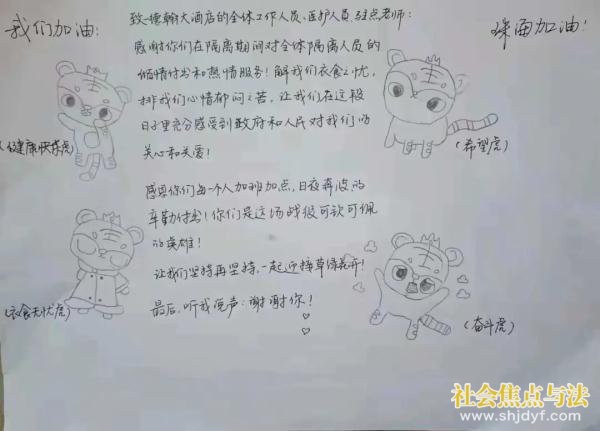 我们加油:
珠海加油!
致德翰大酒店的全体工作人员、医护人员、驻点老师:
感谢你们在隔离期间对全体隔离人员的
倾情付出和热情服务!解我们衣食之忧,
排我们心情郁闷之苦,让我们在这段
日子里充分感受到政府和人民对我们的
关心和关爱!
(健康快乐虎)
(希望虎)
感恩你们每一个人加班加点,日夜奔波的
辛勤付出!你们是这场战役可钦可佩
的英雄!
让我们坚持再坚持,一起迎接草绿花开!
最后,听我说声:谢谢你!
(衣食无忧虎)
(奋斗虎)
社会焦点与法
www.shjdyf.com